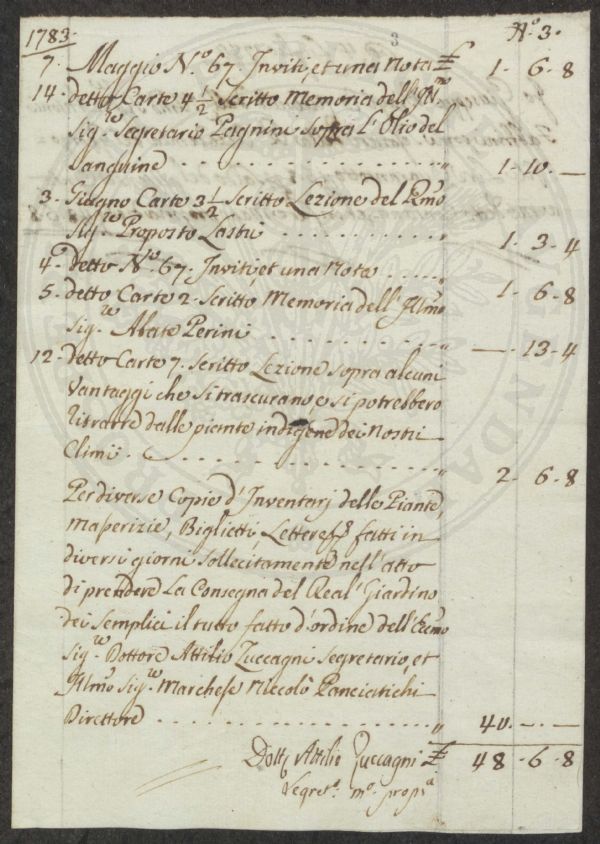 3
N.o 3.
1783.
7. Maggio N.o 67. Inviti, et una Nota £ 1. 6. 8
14. detto Carte 4 1/2 Scritto Memoria dell' Ill.mo
Sig.re Segretario Pagnini sopra l'Olio del
Sanguine . . . . . . . . . . . . " 1. 10. —
3. Giugno Carte 3 1/2 Scritto Lezione del
Sig.re Proposto Lastri . . . . . . . . . " 1. 3. 4
4. detto N.o 67. Inviti, et una Nota . . . . . " 1. 6. 8
5. detto Carte 2. Scritto Memoria dell' Ill.mo
Sig.re Abate Perini . . . . . . . . . " —. 13. 4
12. detto Carte 7. Scritto Lezione sopra alcuni
Vantaggi che si trascurano, e si potrebbero
ritrarre dalle piante indigene dei Nostri
Climi . . . . . . . . . . . . . . " 2. 6. 8
Per diverse Copie d'Inventarj delle Piante,
maserizie, Biglietti, Lettere fatti in
diversi giorni sollecitamente nell'atto
di prendere La Consegna del Real' Giardino
dei Semplici il tutto fatto d'ordine dell' Ecc.mo
Sig.re Dottore Attilio Zuccagni Segretario, et
Ill.mo Sig.re Marchese Niccolò Panciatichi
Direttore . . . . . . . . . . . . . . " 40. —. —
Dott. Attilio Zuccagni £ 48. 6. 8
Segret.o m.o prop.a
PRO AUGENDA